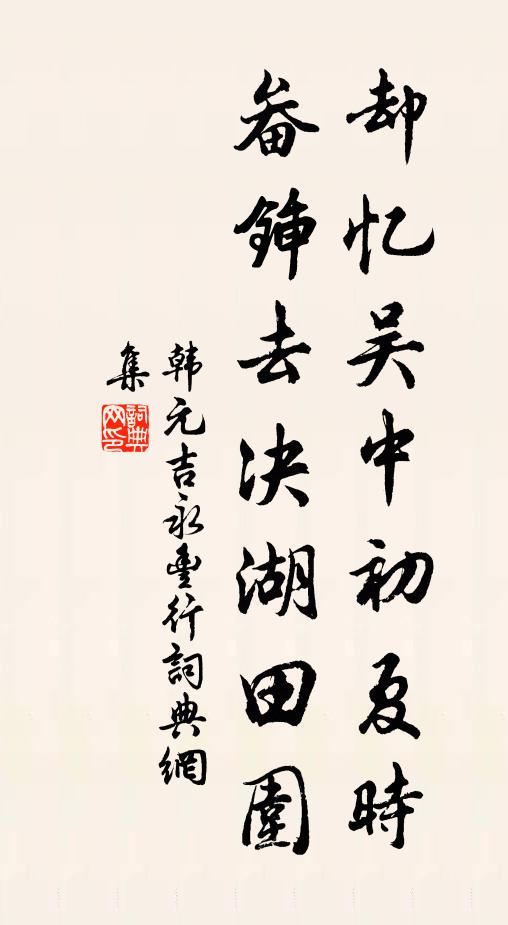 却忆吴中初夏時
畚鍤去决湖田圍
韩元吉永豊行詞典網
集
詞典网印